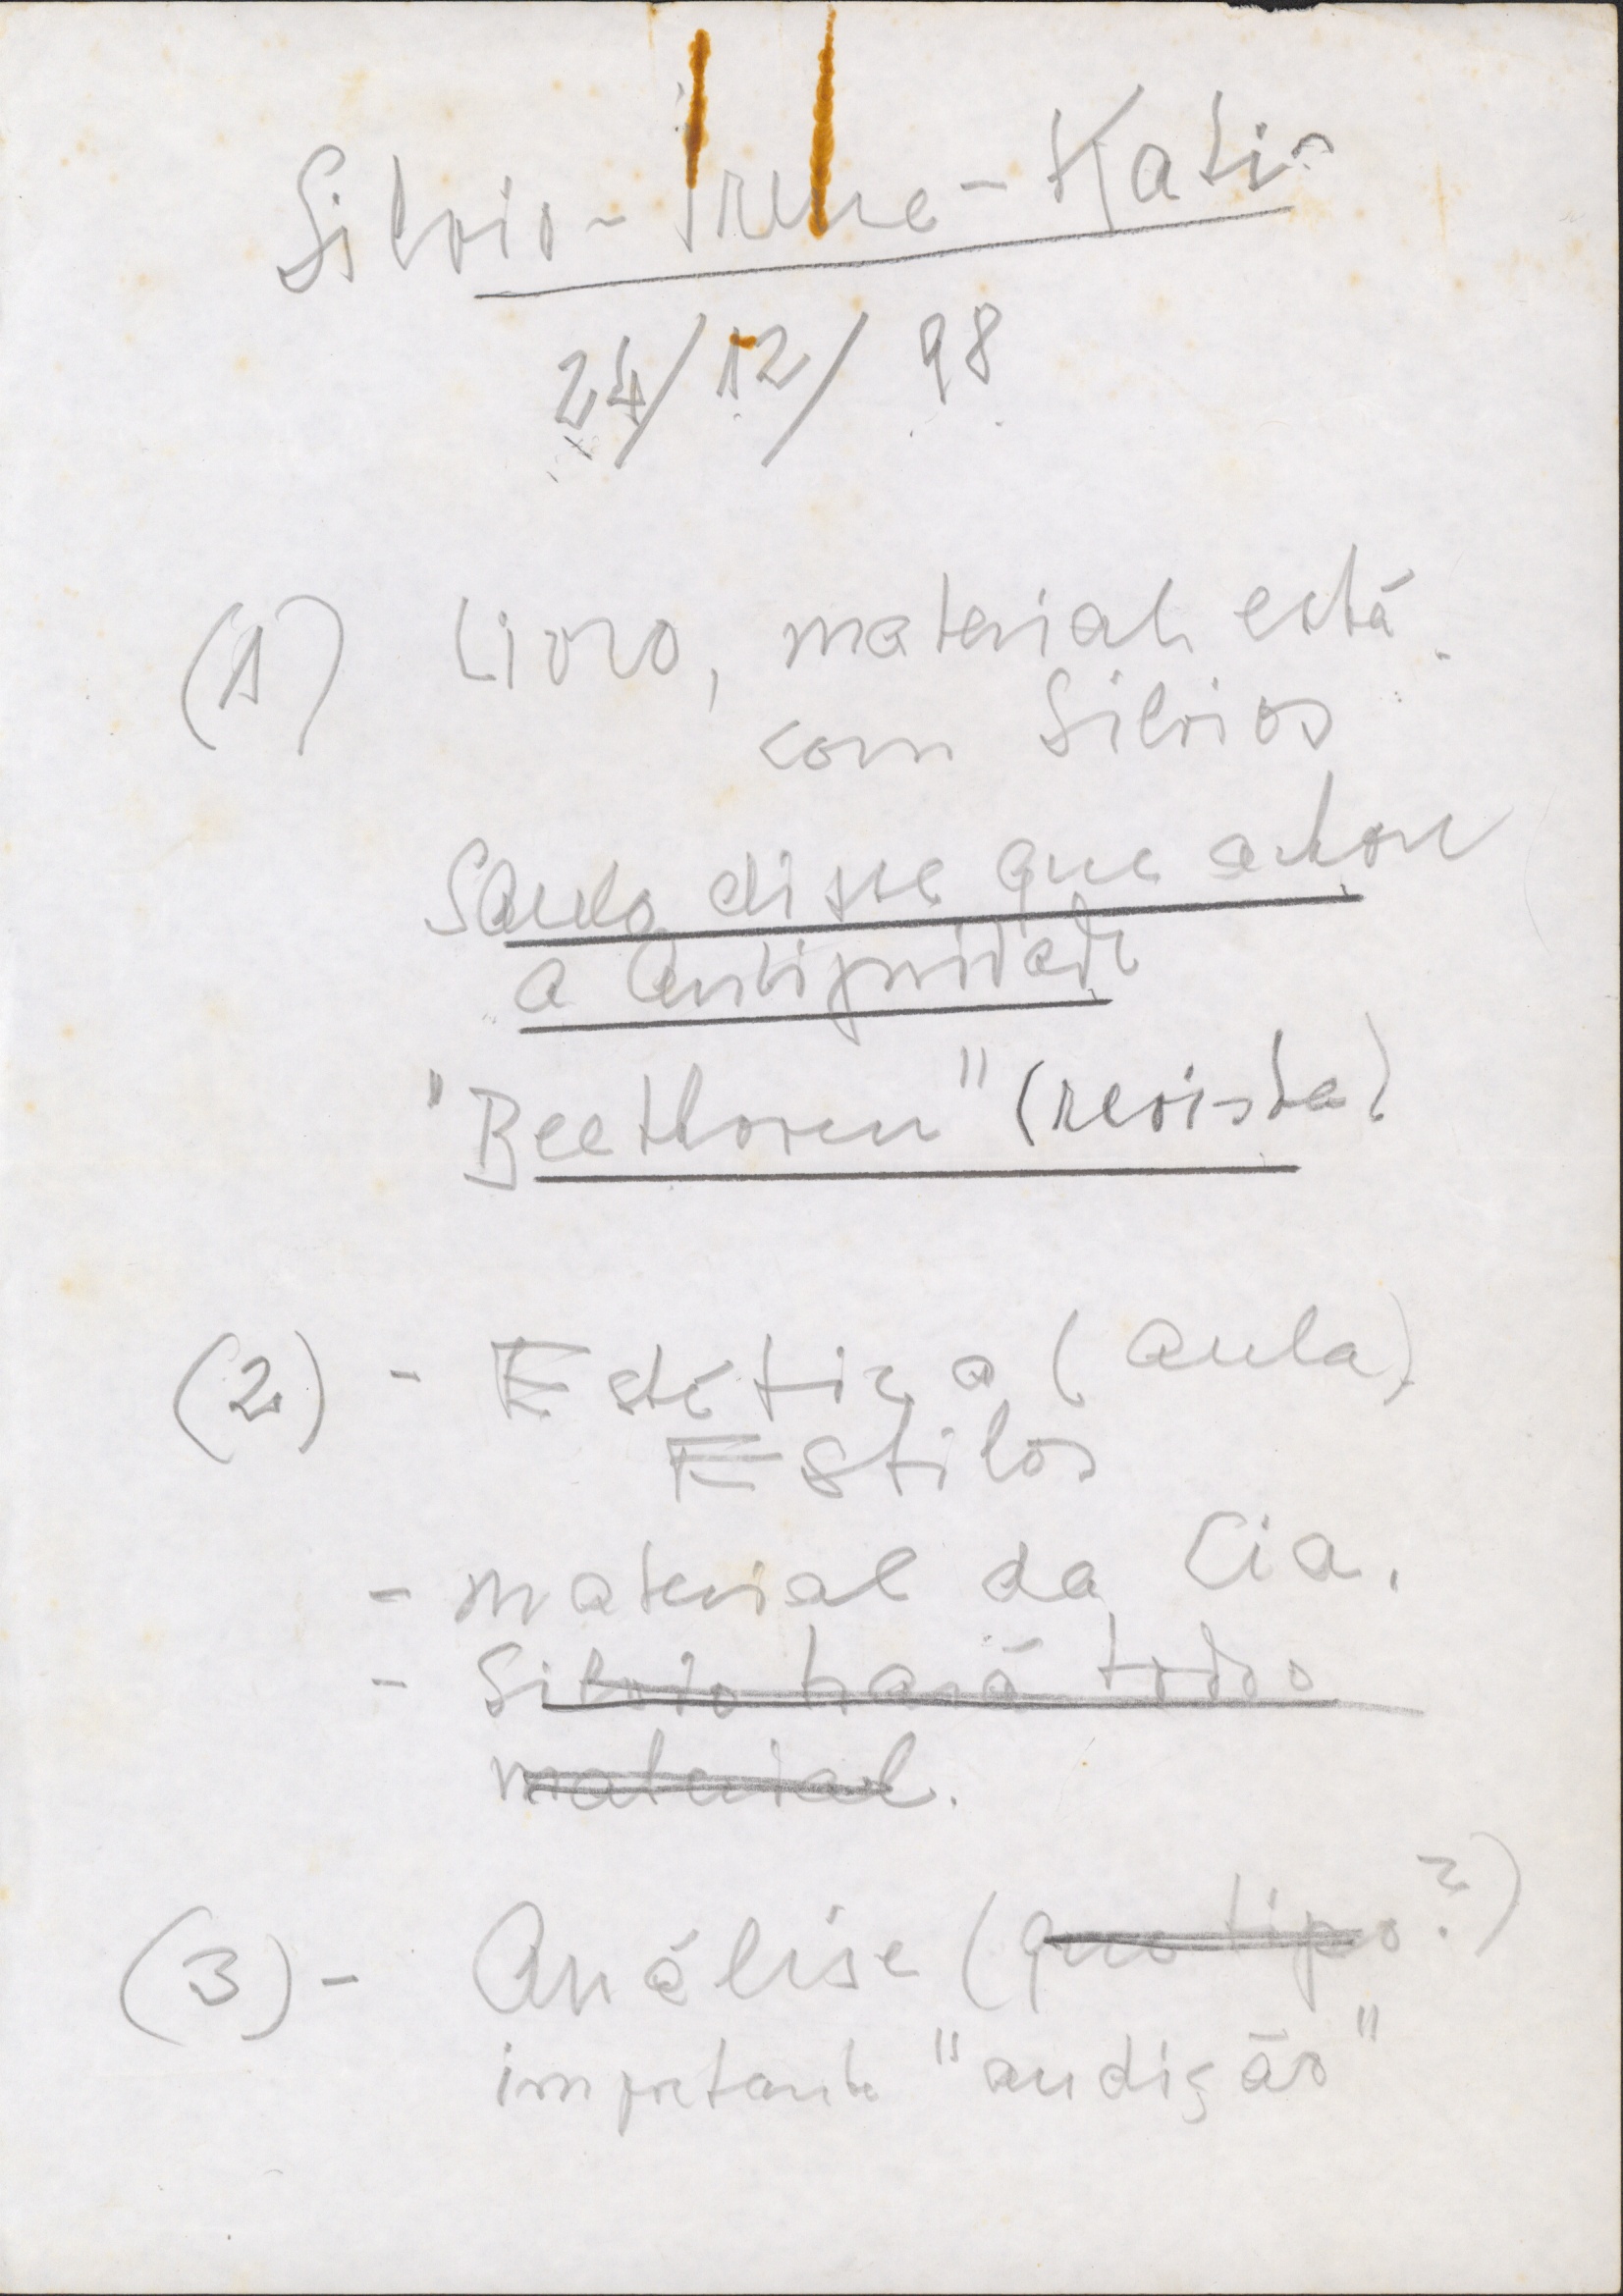 Silvio - Irene - Katia
24/12/98
(1) Livro, material está
com Silvios
Saulo disse que achou
a Antiguidade
"Beethoven" (revista)
(2) - Estética (aula)
Estilos
- material da Cia.
- Silvio trará todo o
material.
(3) - Análise (que tipo?)
importante "audição"